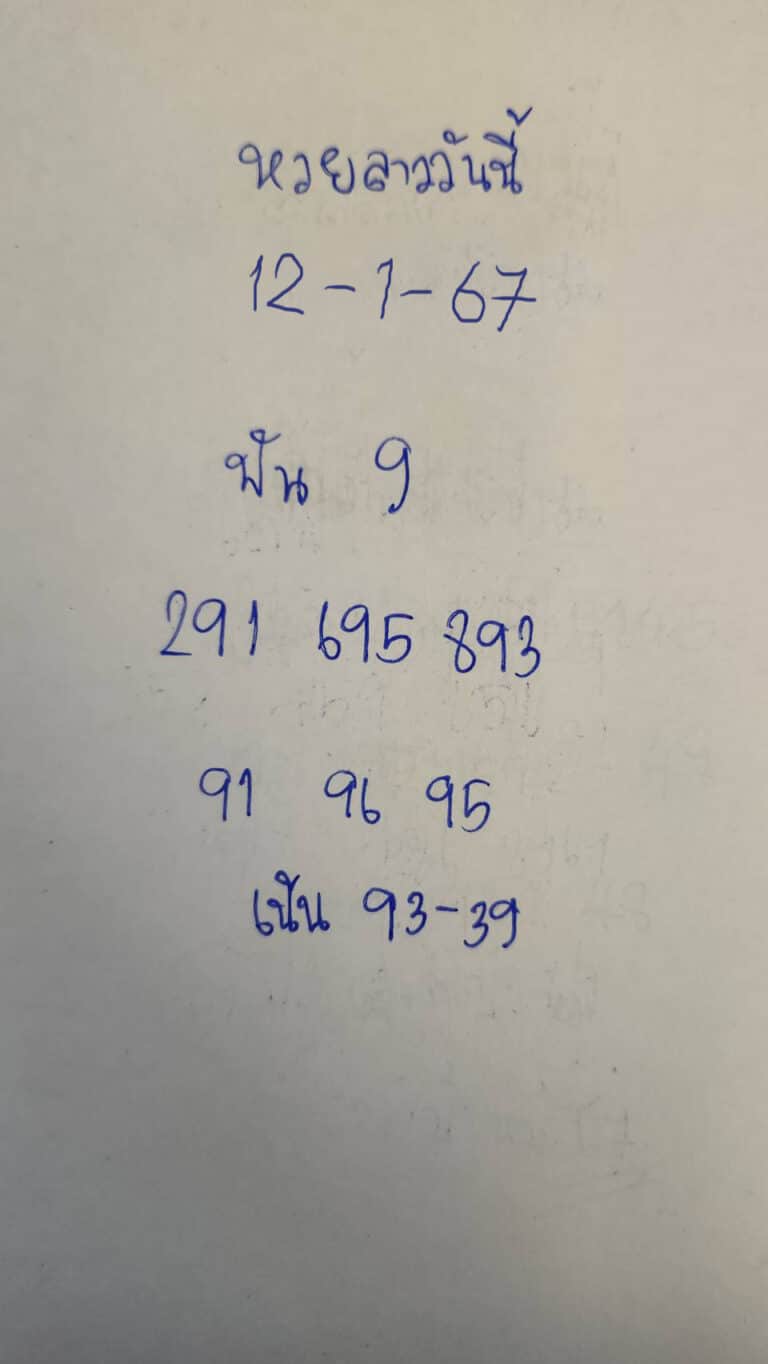 หวยลาววันนี้
12-1-67
ฟัน 9
291 695 893
91 96 95
เน้น 93-39